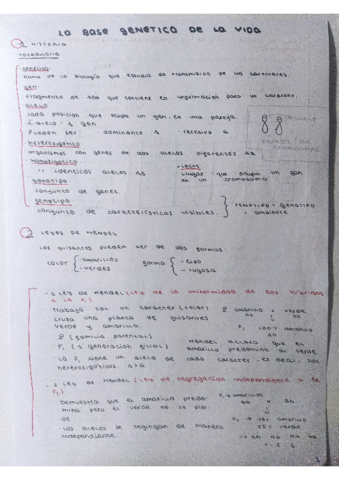 LA BASE GENETICA DE LA VIDA
1 HISTORIA
VOCABULARIO
genetica
Rama de la biología que estudia la transmisión de los caracteres.
gen
Fragmento de ADN que contiene la información para un caracter.
alelo
cada posición que ocupa un gen, en una pareja
2 alelo = 1 gen
Pueden ser: dominante A recesivo a
heterozigótico
organismos con genes de dos alelos diferentes. Aa
homozigótico
" identicos alelos
• Locus
Lugar que ocupa un gen
en un cromosoma
genotipo
conjunto de genes.
fenotipo
conjunto de características visibles.
Fenotipo = genotipo
+ ambiente
2 LEYES DE MENDEL
Los guisantes pueden ser de dos formas
color - amarillos
- verdes
forma - liso
- rugosa
LEY DE MENDEL (Ley de la uniformidad de los híbridos
Trabaja con un caracter (color)
cruza una planta de guisantes
verde y amarilla.
amarillo × verde
F1 100% amarillo
P (familia parental)
F1 (1ª generación filial)
Mendel aclara que el
amarillo predomina al verde
La F1 tiene un alelo de cada caracter. es decir, son
heterozigóticos Aa
LEY de Mendel (Ley de segregación independiente
Demuestra que el amarillo predo-
mina pero el verde no se pie-
de
- Los alelos se segregan de manera
independiente
F1 amarillos
Aa × Aa
F2 → 75% amarillo
25% verde
1